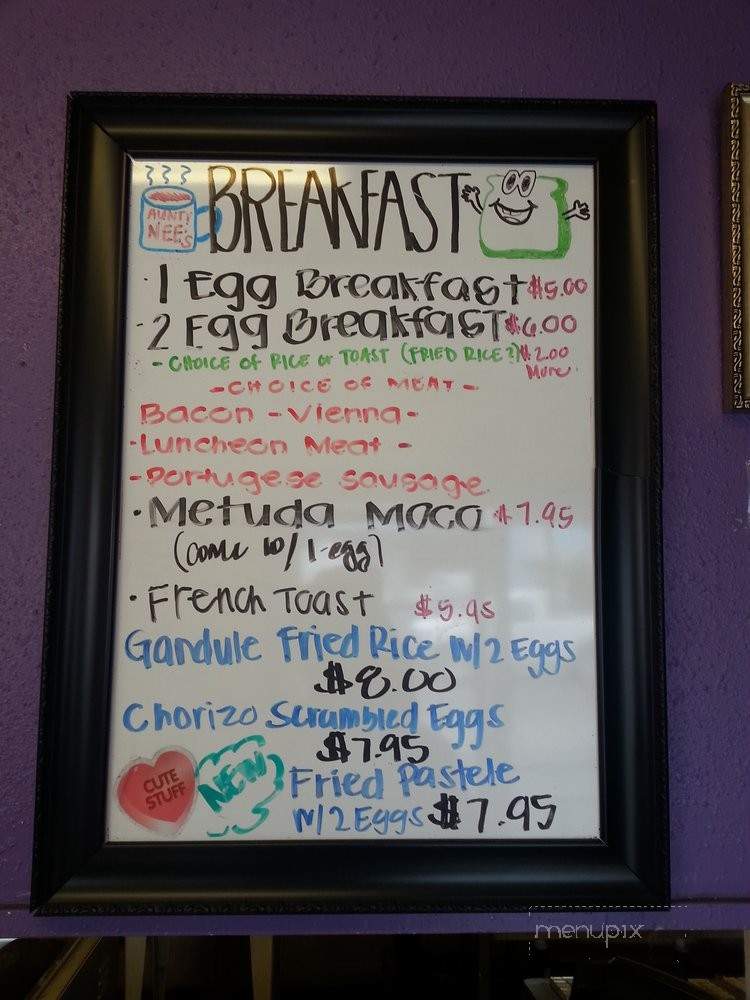 AUNTY
NEE'S
BREAKFAST
· 1 Egg Breakfast $5.00
· 2 Egg Breakfast $6.00
- CHOICE OF RICE or TOAST (FRIED RICE?) $2.00
More
- CHOICE OF MEAT -
Bacon - Vienna -
· Luncheon Meat -
- Portugese Sausage
· Metuda Moco $7.95
(Come w/ 1-egg)
· French Toast $5.95
Gandule Fried Rice W/2 Eggs
$8.00
Chorizo Scrambled Eggs
$7.95
CUTE
STUFF
NEW
Fried Pastele
W/2 Eggs $7.95
menupix